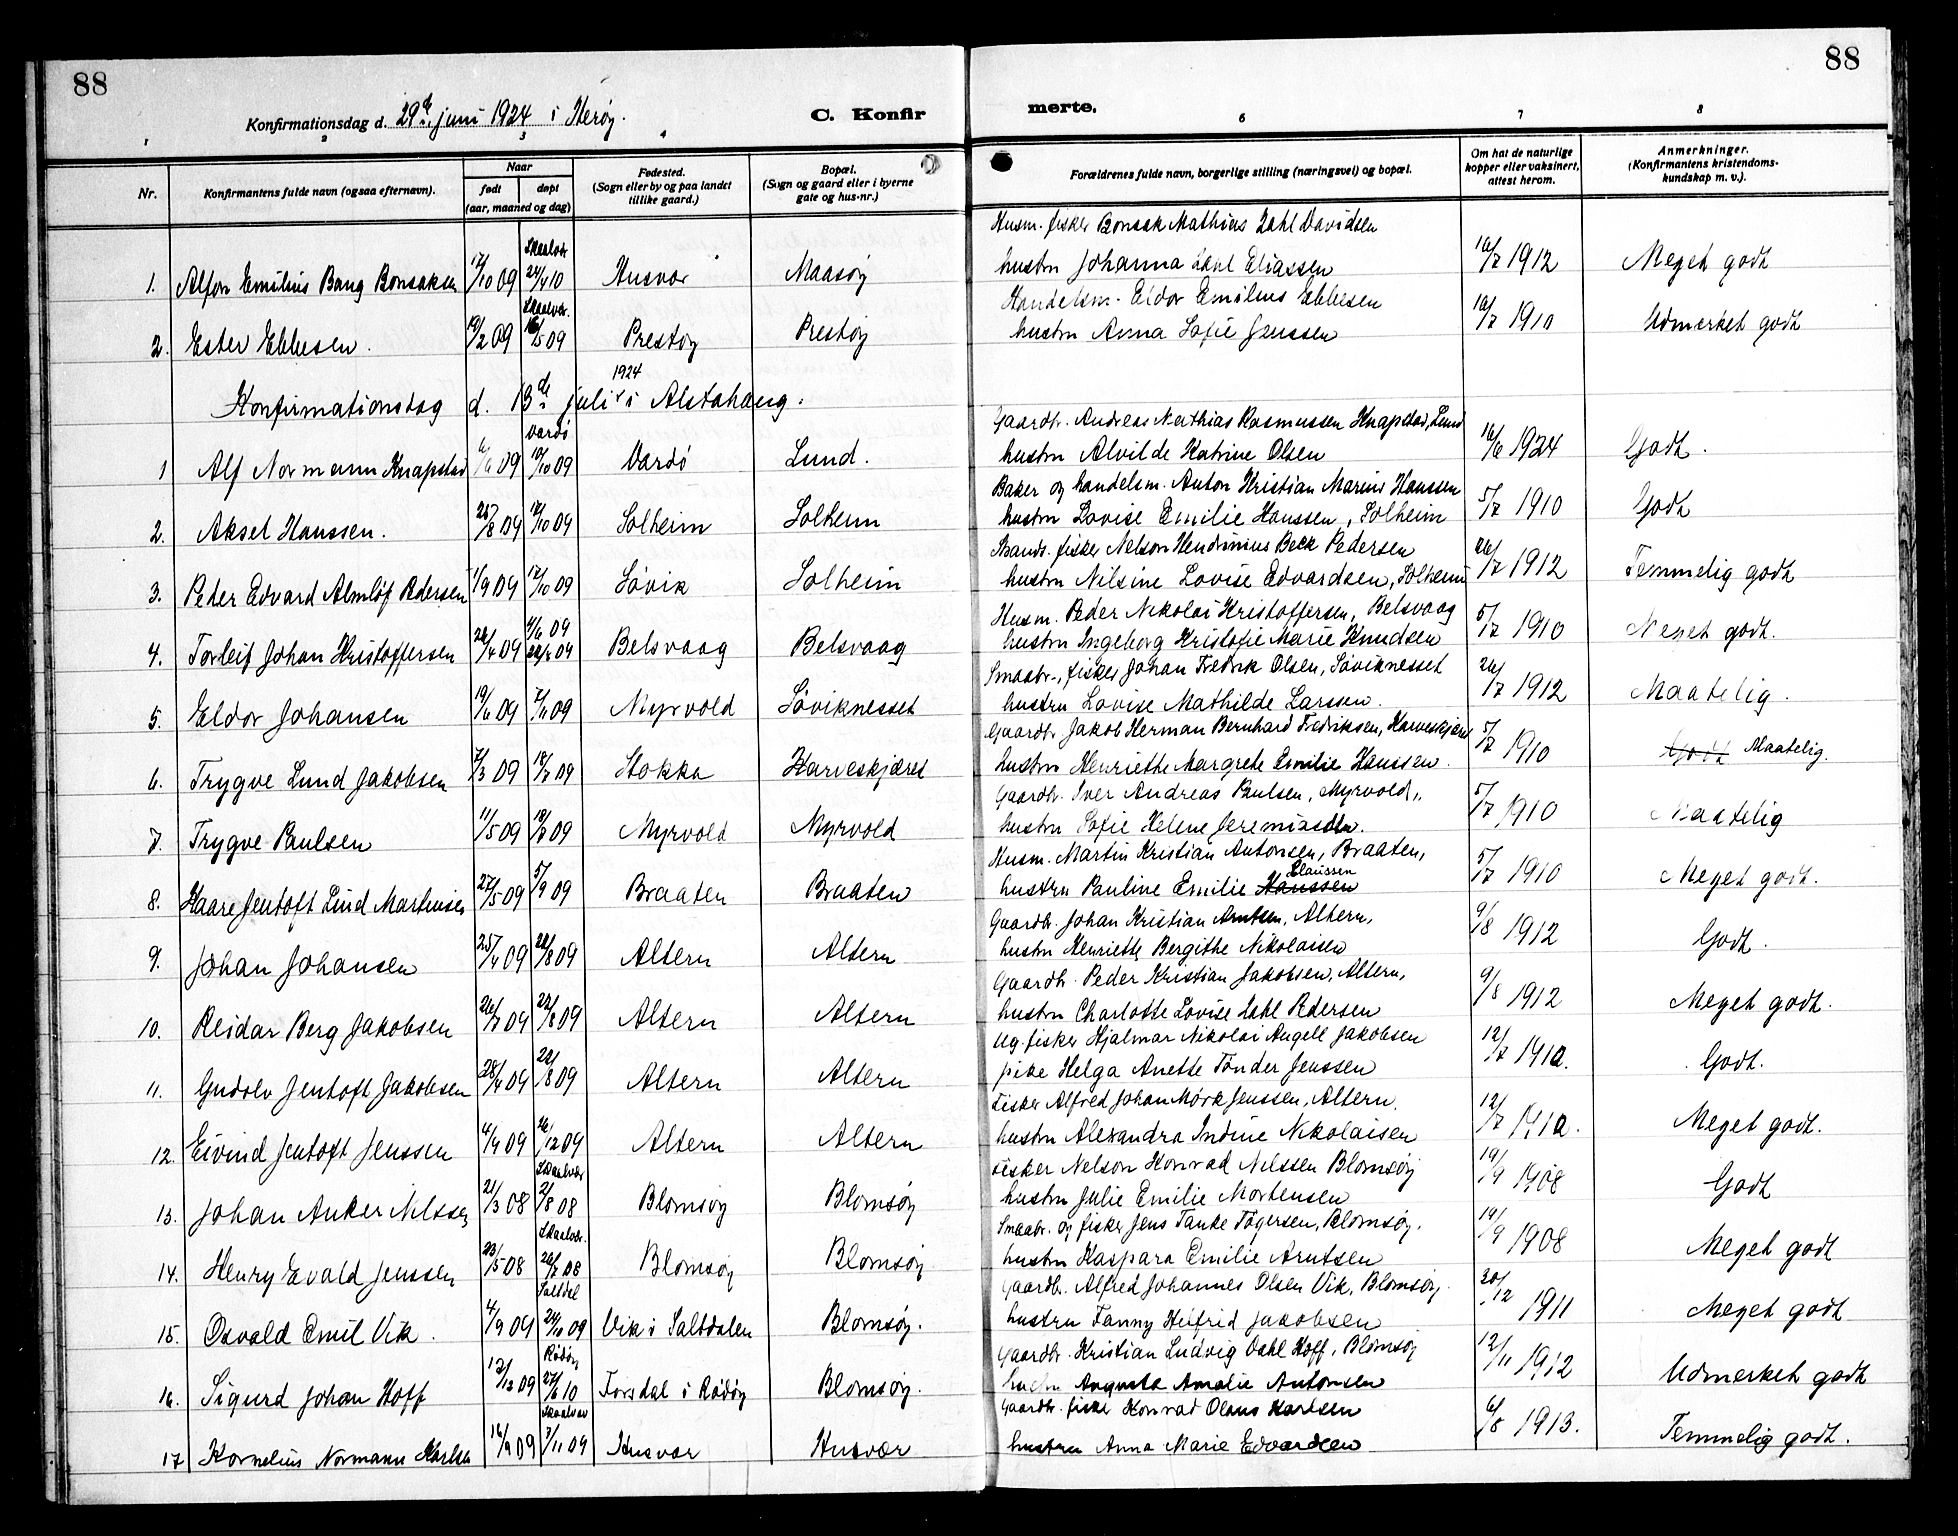 88
88
Konfirmationsdag d. 29de juni 1924 i Herøy.
C. Konfir
merte.
1 2 3 4 6 7 8
Nr.
Konfirmantens fulde navn (ogsaa efternavn).
Naar
født
døpt
(aar, maaned og dag)
Fødested.
(Sogn eller by og paa landet
tillike gaard.)
Bopæl.
(Sogn og gaard eller i byerne
gate og hus-nr.)
Forældrenes fulde navn, borgerlige stilling (næringsvei) og bopæl.
Om hat de naturlige
kopper eller vaksinert,
attest herom.
Anmerkninger.
(Konfirmantens kristendoms-
kundskap m. v.).
Husm. fisker Bonsak Mathias Dahl Davidsen
1. Alfon Emilius Bang Bonsaksen 17/10 09 Skaalvær 24/4 10 Husvær Maasøy hustru Johanna Eliassen 10/7 1912 Meget godt
Handelsm. Eldor Emilius Ebbesen
2. Ester Ebbesen. 19/2 09 Skaalvær. 16/5 09 Prestøy Prestøy hustru Anna Sofie Jenssen 10/7 1910 Udmerket godt
Konfirmationsdag d. 13de juli 1924 i Alstahaug.
Gaardbr. Andreas Mathias Rasmussen Knapstad, Lund
1 Alf Normann Knapstad 09 Vardö 10/10 09 Vardö Lund. hustru Alvilde Katrine Olsen 16/6 1924 Godt.
Baker og handelsm. Anton Kristian Marius Hanssen
2. Aksel Hanssen. 25/8 09 12/10 09 Solheim Solheim hustru Lovise Emilie Hanssen, Solheim 5/7 1910 Godt
Strands. fisker Nelson Hendrinius Beck Pedersen
3. Peder Edvard Almlöf Pedersen 1/9 09 17/10 09 Søvik Solheim hustru Nilsine Lovise Edvardsen, Solheim 26/7 1912 Temmelig godt
Husm. Peder Nikolai Kristoffersen, Belsvaag
4. Torleif Johan Kristoffersen 24/4 09 4/6 09 22/8 09 Belsvaag Belsvaag hustru Ingeborg Kristofie Marie Knudsen 5/7 1910 Meget godt.
Smaabr., fisker Johan Fredrik Olsen, Søviknesset
5. Eldor Johansen 19/6 09 7/11 09 Myrvold Søviknesset hustru Lovise Mathilde Larssen. 26/7 1912 Maatelig.
Gaardbr. Jakob Herman Bernhard Fredriksen, Harveskjæret
6. Trygve Lund Jakobsen 7/3 09 18/7 09 Stokka Harveskjæret hustru Henriette Margrete Emilie Hanssen. 5/7 1910 Godt Maatelig.
Gaardbr. Iver Andreas Paulsen, Myrvold,
7. Trygve Paulsen 11/5 09 18/7 09 Myrvold Myrvold hustru Sofie Helene Jeremiassen. 5/7 1910 Maatelig
Husm. Martin Kristian Antonsen, Braaten,
8. Kaare Jentoft Lind Martinsen 27/5 09 5/9 09 Braaten Braaten hustru Pauline Emilie Hanssen Claussen 5/7 1910 Meget godt.
Gaardbr. Johan Kristian Arntsen, Altern,
9. Johan Johansen 25/4 09 22/8 09 Altern Altern hustru Henriette Bergithe Nikolaisen 9/8 1912 Godt.
Gaardbr. Peder Kristian Jakobsen, Altern,
10. Reidar Berg Jakobsen 26/7 09 22/8 09 Altern Altern hustru Charlotte Lovise Dahl Pedersen 9/8 1912 Meget godt.
Ug. fisker Hjalmar Nikolai Angell Jakobsen
11. Gudolv Jentoft Jakobsen 28/4 09 22/8 09 Altern Altern pike Helga Anette Tönder Jenssen 12/7 1910. Godt.
Fisker Alfred Johan Mörk Jenssen, Altern.
12. Eivind Jentoft Jenssen 4/9 09 26/12 09 Altern Altern hustru Alexandra Indine Nikolaisen 12/7 1910. Meget godt.
Fisker Nelson Konrad Nilssen Blomsøy
13. Johan Anker Nilssen 21/3 08 Skaalvær 2/8 08 Blomsøy Blomsøy hustru Julie Emilie Mortensen 19/9 1908 Godt
Smaabr. og fisker Jens Tanke Tögersen, Blomsøy.
14. Henry Evald Jenssen 23/5 08 Skaalvær. 26/7 08 Blomsøy Blomsøy hustru Kaspara Emilie Arntsen 19/9 1908 Meget godt
Gaardbr. Alfred Johannes Olsen Vik, Blomsøy.
15. Osvald Emil Vik. 4/9 09 Saltdal 24/10 09 Vik i Saltdalen Blomsøy. hustru Fanny Heifrid Jakobsen 20/12 1911 Meget godt
Gaardbr. Kristian Ludvig Dahl Hoff, Blomsøy
16. Sigurd Johan Hoff 12/12 09 Rödöy 27/6 10 Forsdal i Rödöy Blomsøy. hustru Augusta Amalie Antonsen 12/11 1912 Udmerket godt
Gaardbr. fisker Konrad Olaus Karlsen
17 Kornelius Normann Karlsen 16/9 09 Skaalvær 7/11 09 Husvær Husvær hustru Anna Marie Edvardsen 6/8 1913. Temmelig godt.